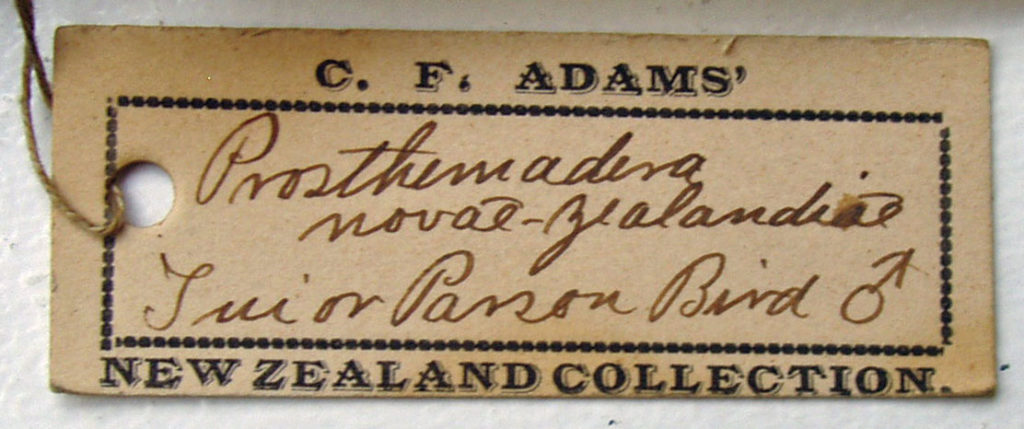 C. F. ADAMS'
Prosthemadera
novae-zealandiae
Tui or Parson Bird ♂
NEW ZEALAND COLLECTION.